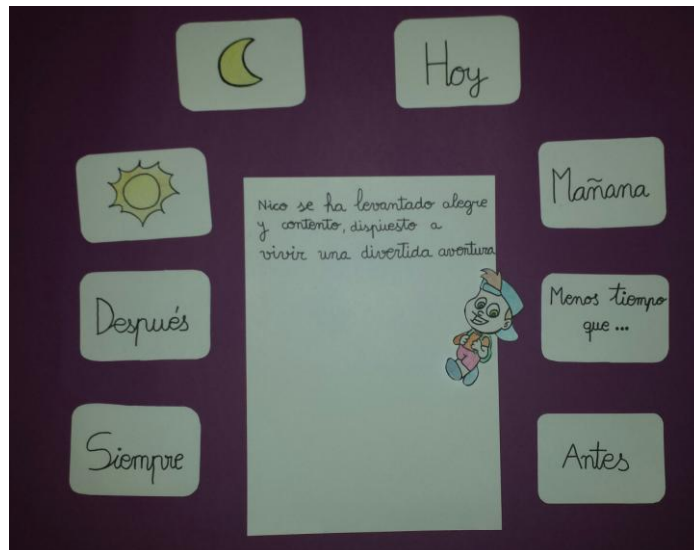 Hoy
Mañana
Nico se ha levantado alegre
y contento, dispuesto a
vivir una divertida aventura
Después
Menos tiempo
que ...
Siempre
Antes